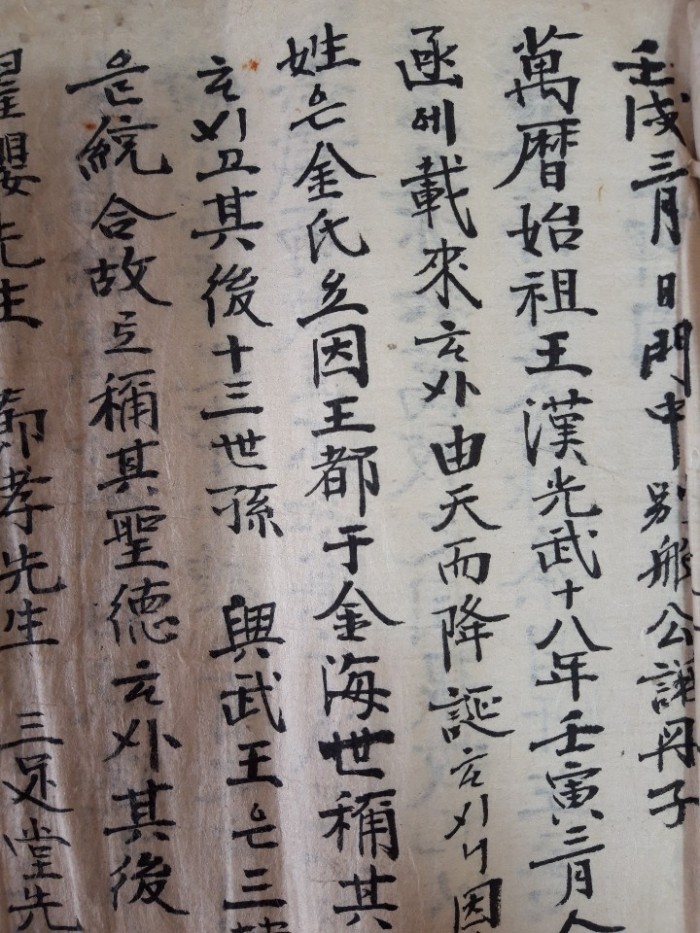 壬戌三月日門中別般公議冊子
萬曆始祖王漢光武十八年壬寅三月
函에載來ᄒᆞ야由天而降誕ᄒᆞ시니因
姓은金氏也因王都于金海世稱其
ᄒᆞ시고其後十三世孫 興武王은三韓
은統合故로稱其聖德ᄒᆞ야其後
先生 節孝先生 三足堂先